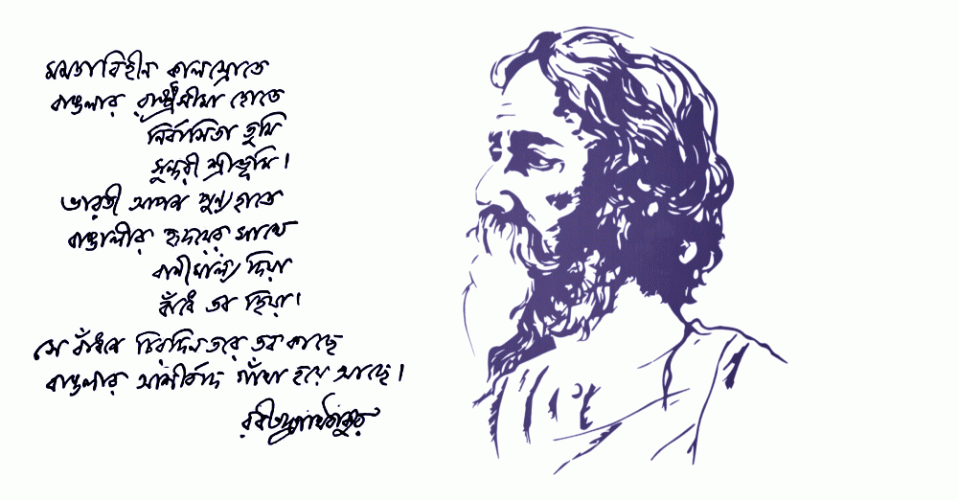 মমতাবিহীন কালস্রোতে
বাঙলার রাষ্ট্রসীমা হোতে
নির্বাসিতা তুমি
সুন্দরী শ্রীভূমি।
ভারতী আপন পুণ্যহাতে
বাঙালীর হৃদয়ের সাথে
বাণীমাল্য দিয়া
বাঁধে তব হিয়া।
সে বাঁধনে চিরদিনতরে তব কাছে
বাঙলার আশীর্বাদ গাঁথা হয়ে আছে।
রবীন্দ্রনাথ ঠাকুর